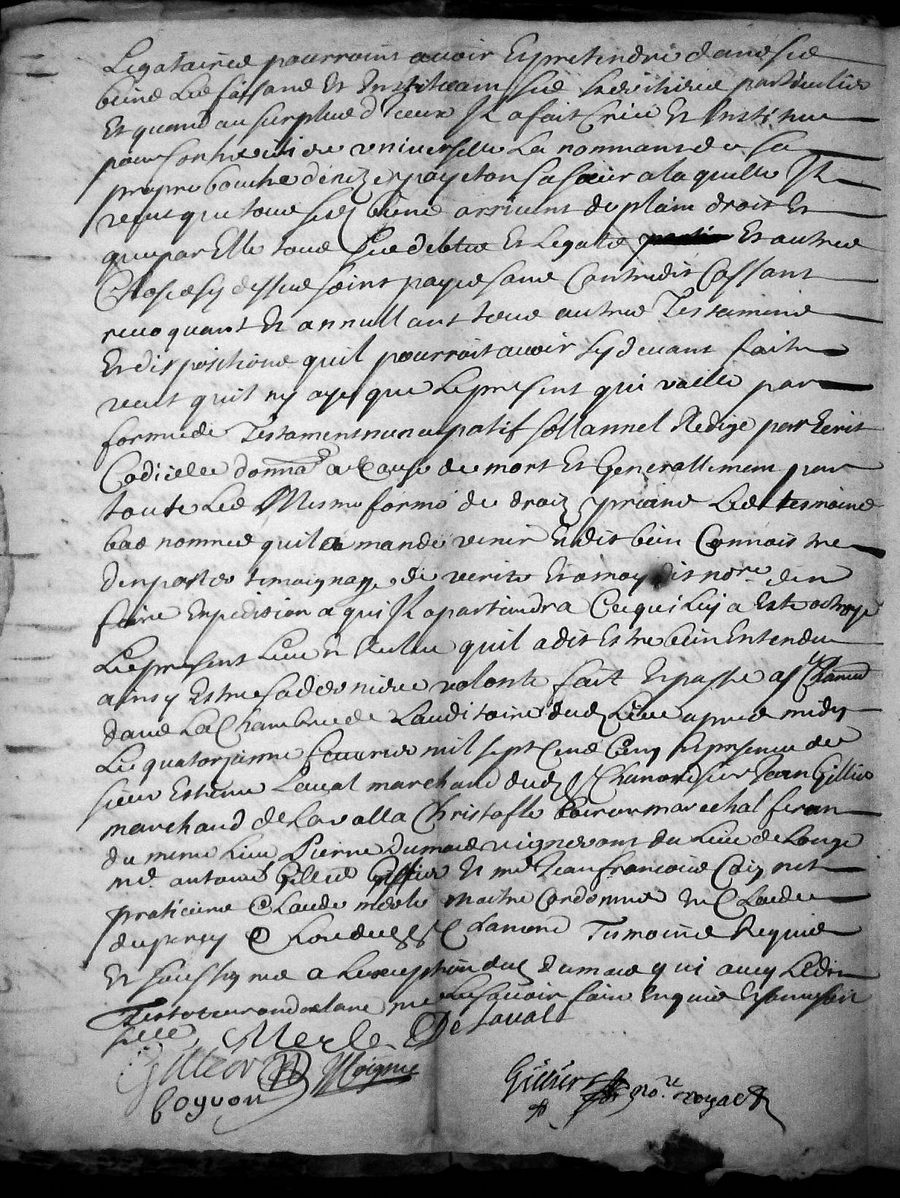 Legataires pourroint avoir Et pretendre dans ses
biens Les faisant Et Instituant ses heritiers particuliers
Et quand au surplus d'iceux Il a fait Cree Et Institue
pour son heritiere universelle La nommant de sa
propre bouche denize payeton sa sœur a laquelle Il
veut que tous sesd biens arrivent de plain droit Et
que par Elle tous ses debtes Et Legats Et autres
Choses sy dessus soint payes sans Contredit Cassant
revoquant Et annullant tous autres Testamens
Et dispositions quil pourroit avoir sy devant faits
veut quil ny aye que Le present qui vaille par
forme de Testament nuncupatif sollannel Redige par Ecrit
Codicille donnaon a Cause de mort Et Generallement pour
toute Les Mesme forme de droit priant Les tesmoins
bas nommes quil a mande venir Et dit bien Connoistre
den porter temoignage de verite Et a moy dit nore den
faire Expedition a qui Il apartiendra Ce qui Luy a Este octroye
Le present Leu Et Releu quil a dit Estre bien Entendu
ainsy Estre sa derniere volonte fait Et passe a St Chamond
dans La Chambre de Lauditoire dud Lieu apres midy
Le quatorzieme feuvrier mil sept Cens Cinq En presence de
sieur Estienne Laval marchand dud St Chamond sieur Jean Gillier
marchand de Lavalla Christofle marechal feran
du meme Lieu Pierre Dumas vigneront du Lieu de
me antoine Gillier Et me Jean francois Coignet
praticiens Claude Merle maitre Cordonnier Et Claude
dud St Chamond Tesmoins Requis
Et soussignes a Lexception dud Dumas qui avec Ledit
Testateur ont declare ne Le savoir faire Enquis Et
Merle De Lavall
Gillier Coignet
Coyvon Gillier nore royal